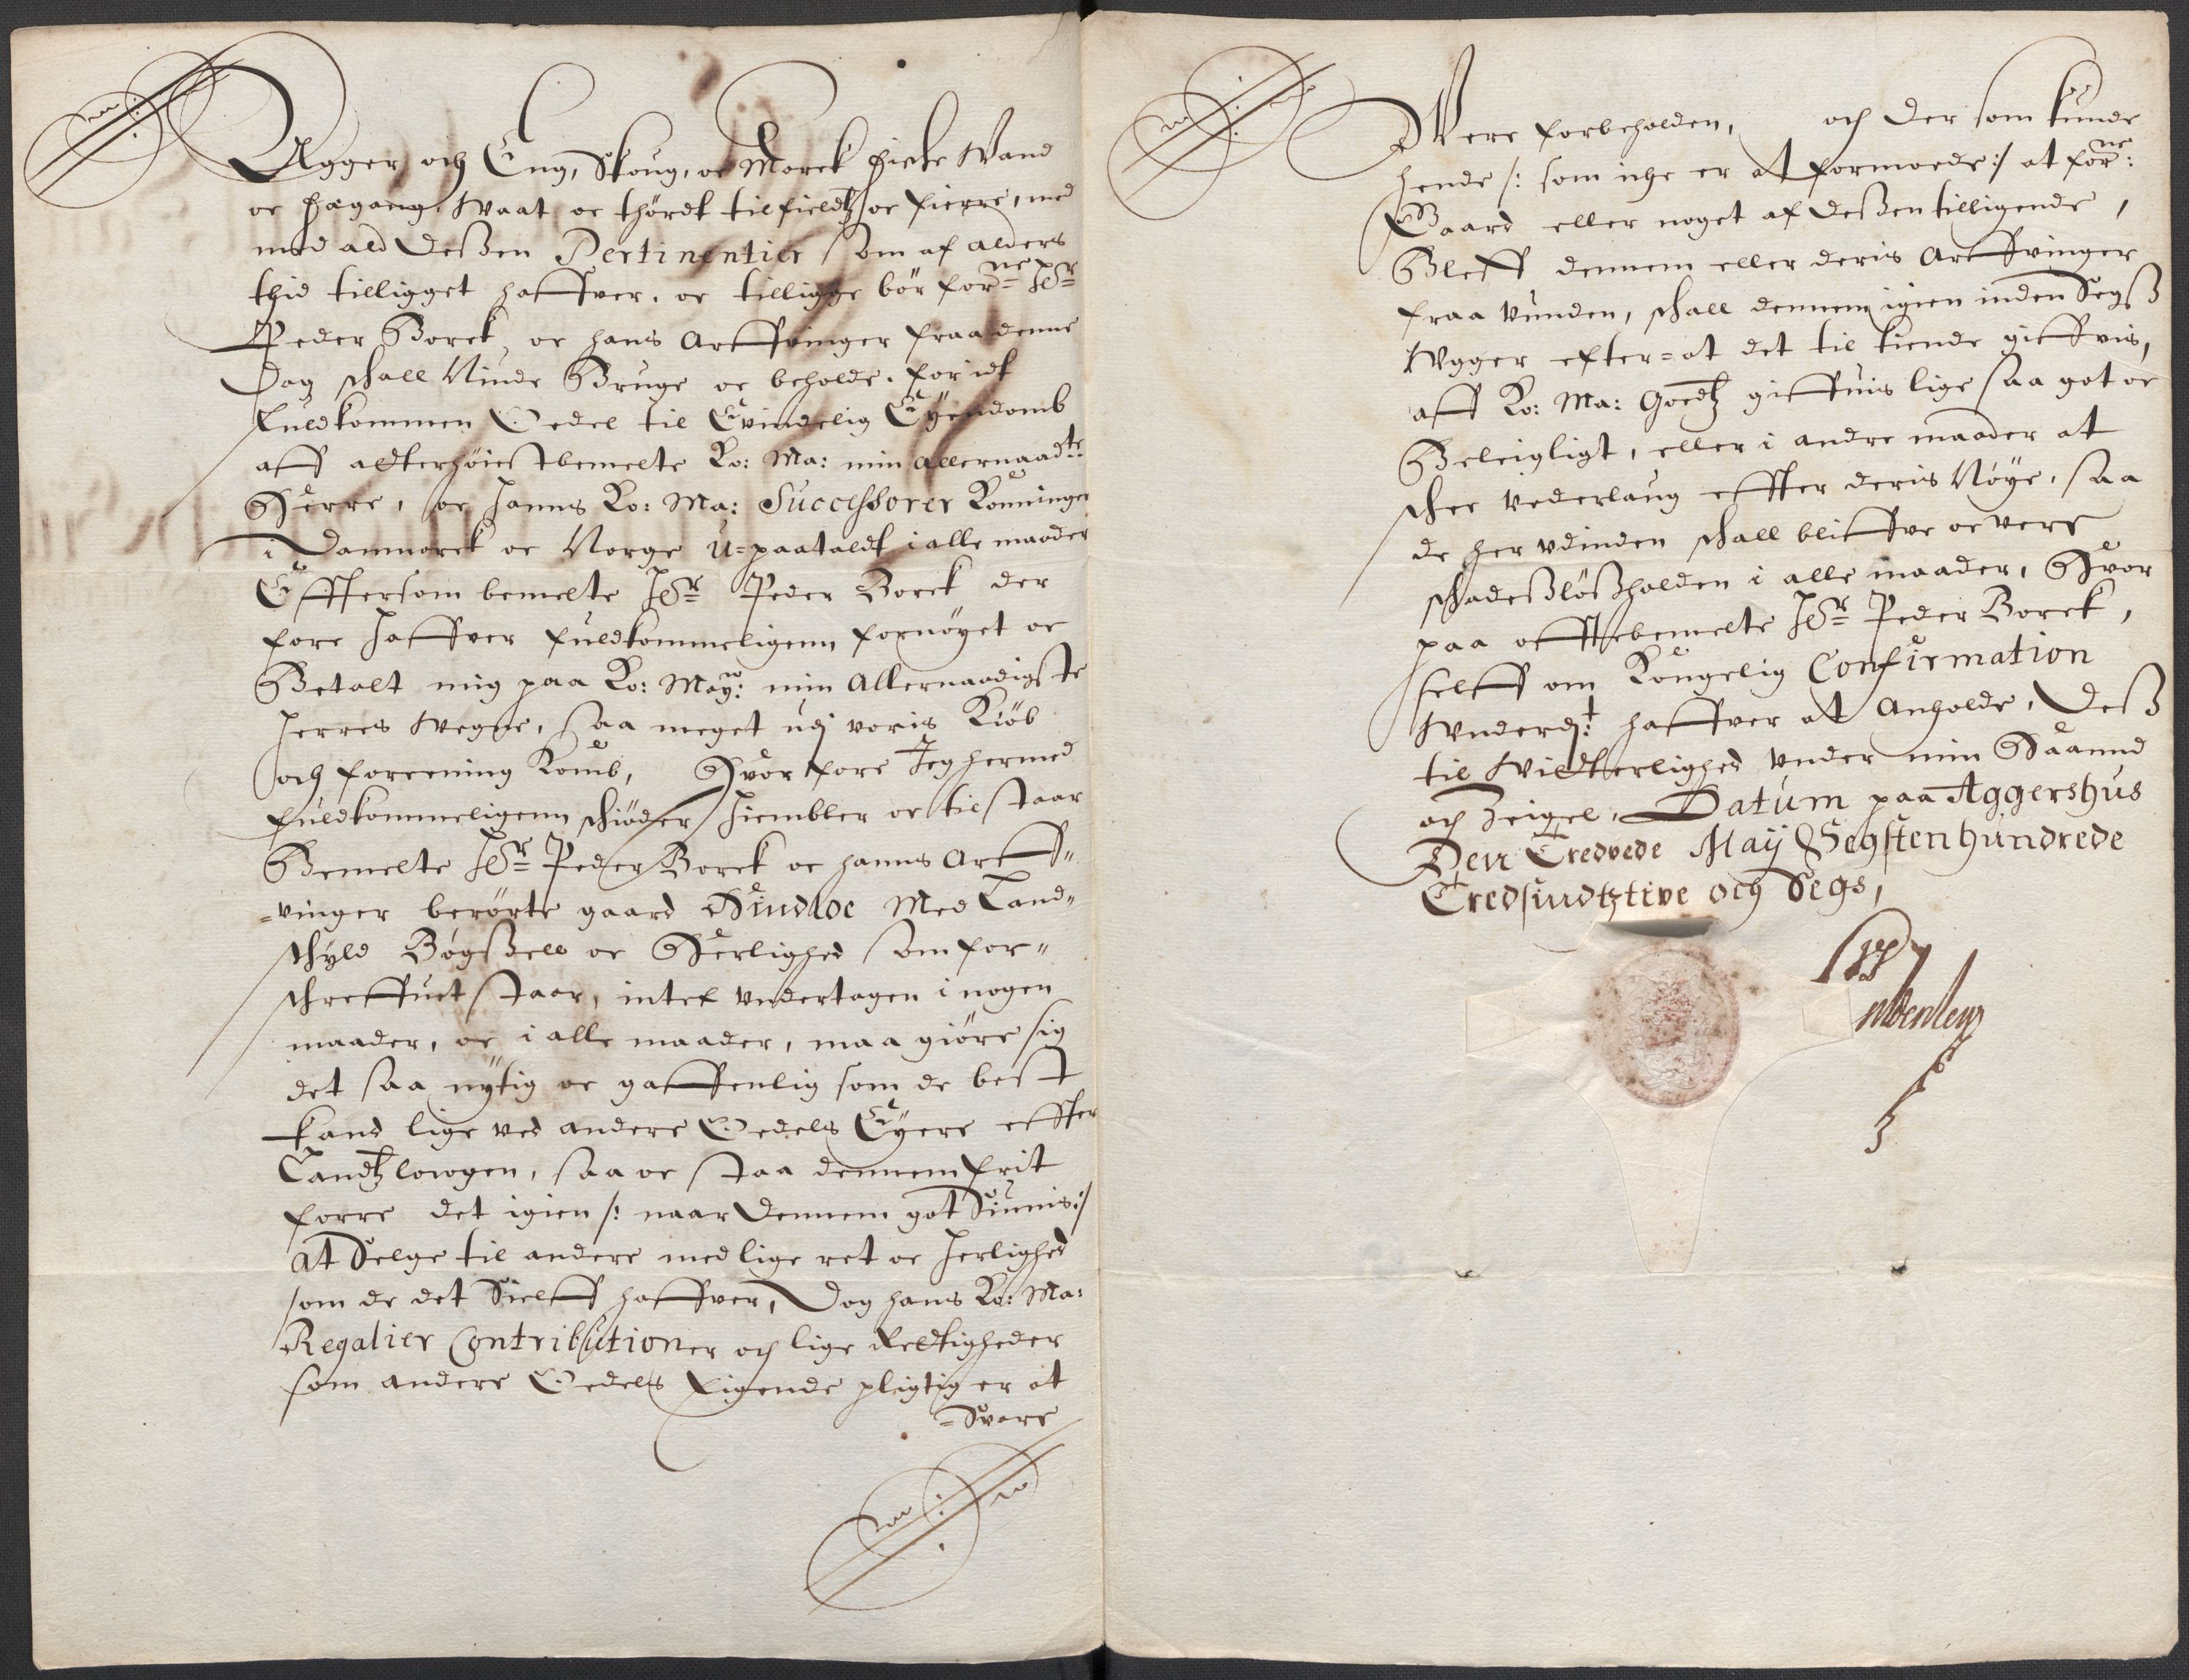 Agger och Eng, Skoug, oc Marck fiske Wand
oc fægang, Waat oc thørdt til fieldtz oc fierre, med
med ald deßen Pertinentier som af alders
thid tilligget haffver, oc tilligge bør forne: Hr:
Peder Borck, oc hans Arffvinger fraa denne
Dag schall Niude Bruge oc beholde, for idt
fuldkommen Oedel til Evindelig Eyendomb
aff alterhøiestbemelte Ko: Ma: min allernaadte:
Herre, oc hanns Ko: Ma: Successorer Konninger
i Danmarck oc Norge u=paataldt i alle maader
Efftersom bemelte Hr: Peder Borck der
fore haffver fuldkommeligenn fornøyet oc
Betalt mig paa Ko: May: min Allernaadigste
Herres Wegne, saa meget udj voris Kiøb
och foreening Komb, Hvorfore Jeg hermed
fuldkommeligenn schiøder hiembler oc tilstaar
Bemelte Hr: Peder Borck oc hanns Arff=
=vinger berørte gaard Hindloe Med Land=
schyld Bøgßell oc Herlighed som for=
schreffuet staar, intet undertagen i nogen
maader, oc i alle maader, maa giøre sig
det saa nytig oc gaffenlig som de best
kand lige ved andere Oedels Eyere effter
Landtzlowgen, saa oc staa dennem frit
forre det igien /: naar dennem got Siunis :/
At Selge til andere med lige ret oc herlighed
som de det Sielff haffver, Dog hans Ko: Ma:
Regalier Contributioner och lige Rettigheder
som andere Oedels Eigende pligtig er at
=Svare
Were forbeholden, och der som kunde
hende /: som iche er at formoede :/ at forne:
Gaard eller noget af deßen tilligende,
Bleff dennem eller deris Arffvinger
fraa vunden, schall dennem igien inden Segß
Wgger efter=at det til kiende giffvis,
aff Ko: Ma: Goedtz giffuis lige saa got oc
Beleigligt, eller i andre maader at
schee vederlaug effter deris Nøye, saa
de her udinden schall bliffve oc vere
schadeßlößholden i alle maader, Hvor
paa offtebemelte Hr: Peder Borck,
selff om Kongelig Confirmation
Wnderdt: haffver at Anholde, Deß
til Vidterlighed under min Haannd
och Zeigel, Datum paa Aggershus
Den Tredvede Maij Segstenhundrede
Tredsindtztive och Segs,